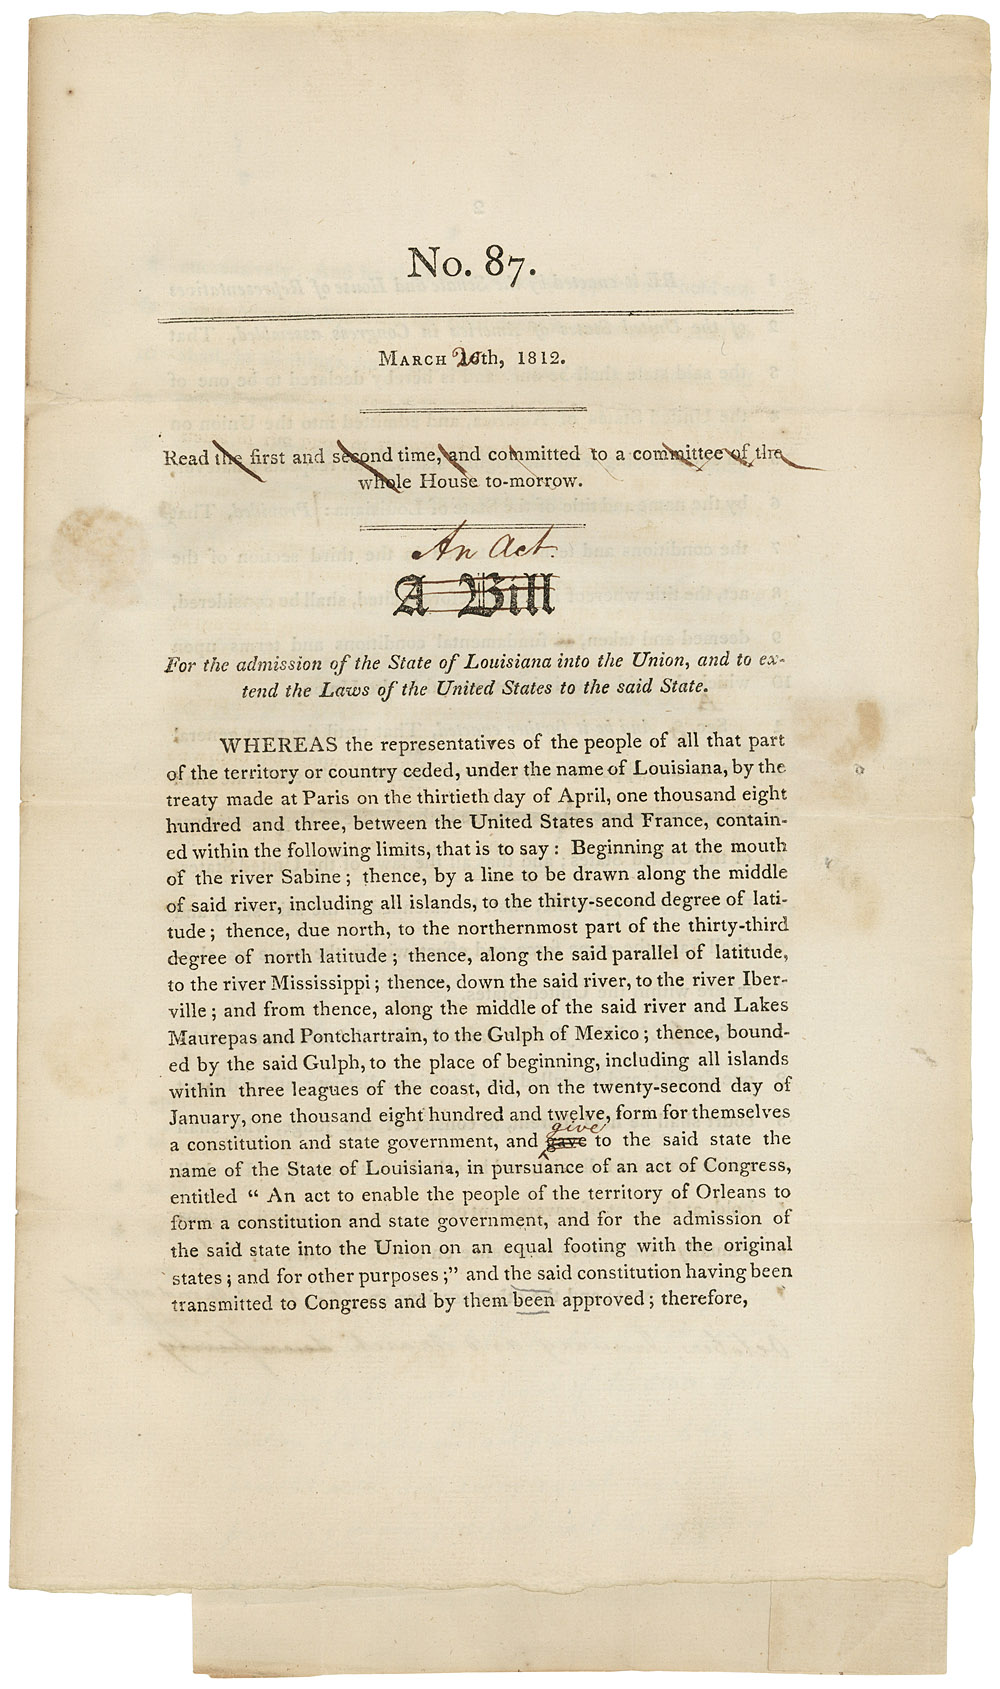 No. 87.
MARCH 20th, 1812.
Read the first and second time, and committed to a committee of the
whole House to-morrow.
An Act.
A Bill
For the admission of the State of Louisiana into the Union, and to ex-
tend the Laws of the United States to the said State.
WHEREAS the representatives of the people of all that part
of the territory or country ceded, under the name of Louisiana, by the
treaty made at Paris on the thirtieth day of April, one thousand eight
hundred and three, between the United States and France, contain-
ed within the following limits, that is to say: Beginning at the mouth
of the river Sabine; thence, by a line to be drawn along the middle
of said river, including all islands, to the thirty-second degree of lati-
tude; thence, due north, to the northernmost part of the thirty-third
degree of north latitude; thence, along the said parallel of latitude,
to the river Mississippi; thence, down the said river, to the river Iber-
ville; and from thence, along the middle of the said river and Lakes
Maurepas and Pontchartrain, to the Gulph of Mexico; thence, bound-
ed by the said Gulph, to the place of beginning, including all islands
within three leagues of the coast, did, on the twenty-second day of
January, one thousand eight hundred and twelve, form for themselves
give
a constitution and state government, and gave to the said state the
name of the State of Louisiana, in pursuance of an act of Congress,
entitled “ An act to enable the people of the territory of Orleans to
form a constitution and state government, and for the admission of
the said state into the Union on an equal footing with the original
states; and for other purposes;” and the said constitution having been
transmitted to Congress and by them been approved; therefore,